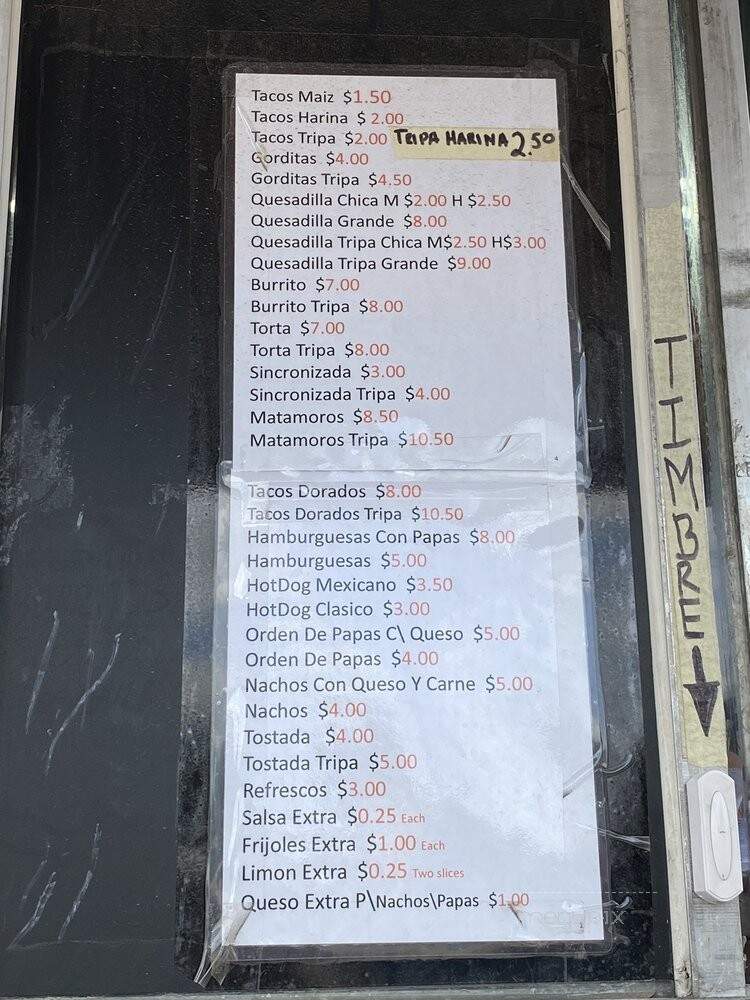 Tacos Maiz $1.50
Tacos Harina $ 2.00
Tacos Tripa $2.00 TRIPA HARINA 2.50
Gorditas $4.00
Gorditas Tripa $4.50
Quesadilla Chica M $2.00 H $2.50
Quesadilla Grande $8.00
Quesadilla Tripa Chica M$2.50 H$3.00
Quesadilla Tripa Grande $9.00
Burrito $7.00
Burrito Tripa $8.00
Torta $7.00
Torta Tripa $8.00
Sincronizada $3.00
Sincronizada Tripa $4.00
Matamoros $8.50
Matamoros Tripa $10.50
Tacos Dorados $8.00
Tacos Dorados Tripa $10.50
Hamburguesas Con Papas $8.00
Hamburguesas $5.00
HotDog Mexicano $3.50
HotDog Clasico $3.00
Orden De Papas C\ Queso $5.00
Orden De Papas $4.00
Nachos Con Queso Y Carne $5.00
Nachos $4.00
Tostada $4.00
Tostada Tripa $5.00
Refrescos $3.00
Salsa Extra $0.25 Each
Frijoles Extra $1.00 Each
Limon Extra $0.25 Two slices
Queso Extra P\Nachos\Papas $1.00
TIMBRE